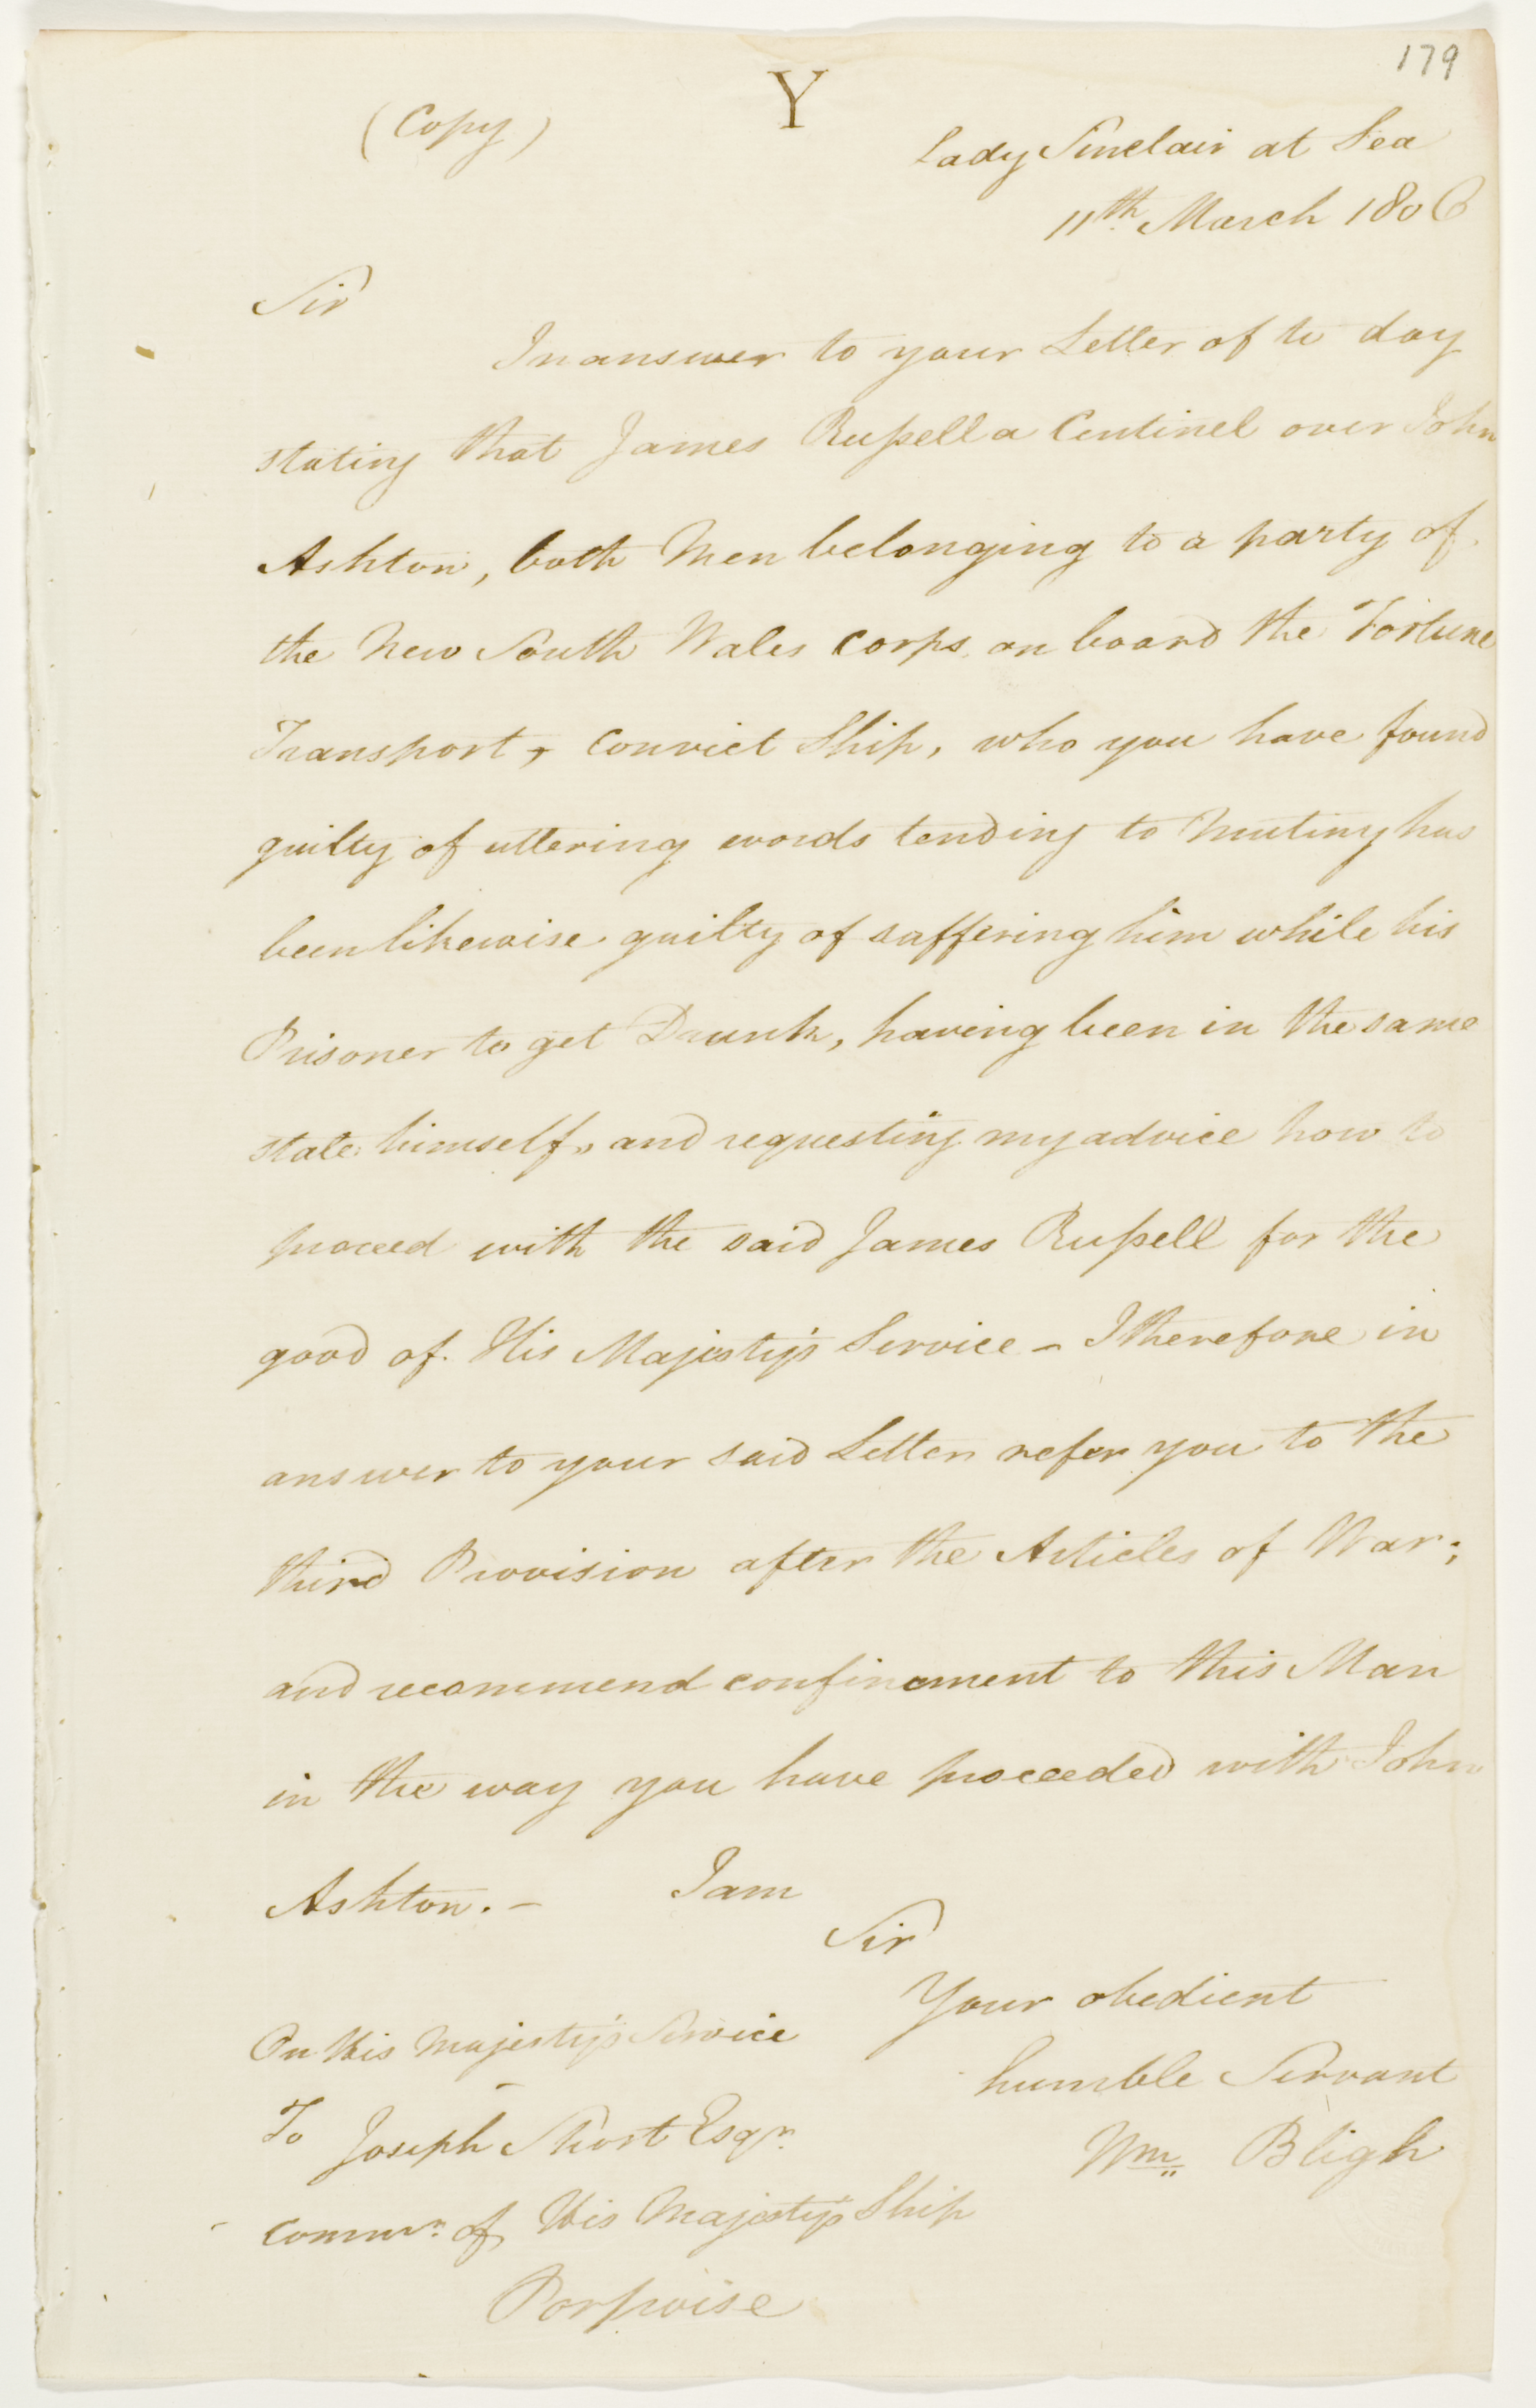 179
Y
(Copy)
Lady Sinclair at Sea
11th. March 1806
Sir
In answer to your Letter of to day
stating that James Russell a Centinel over John
Ashton, both Men belonging to a party of
the New South Wales Corps, on board the Fortune
Transport, Convict Ship, who you have found
guilty of uttering words tending to Mutiny has
been likewise guilty of suffering him while his
Prisoner to get Drunk, having been in the same
state himself, and requesting my advice how to
proceed with the said James Russell for the
good of His Majesty's Service - I therefore in
answer to your said Letter refer you to the
third Provision after the Articles of War;
and recommend confinement to this Man
in the way you have proceeded with John
Ashton. - I am
Sir
Your obedient
humble Servant
Wm. Bligh
On His Majesty's Service
To Joseph Short Esqr.
Commr. of His Majesty's Ship
Porpoise